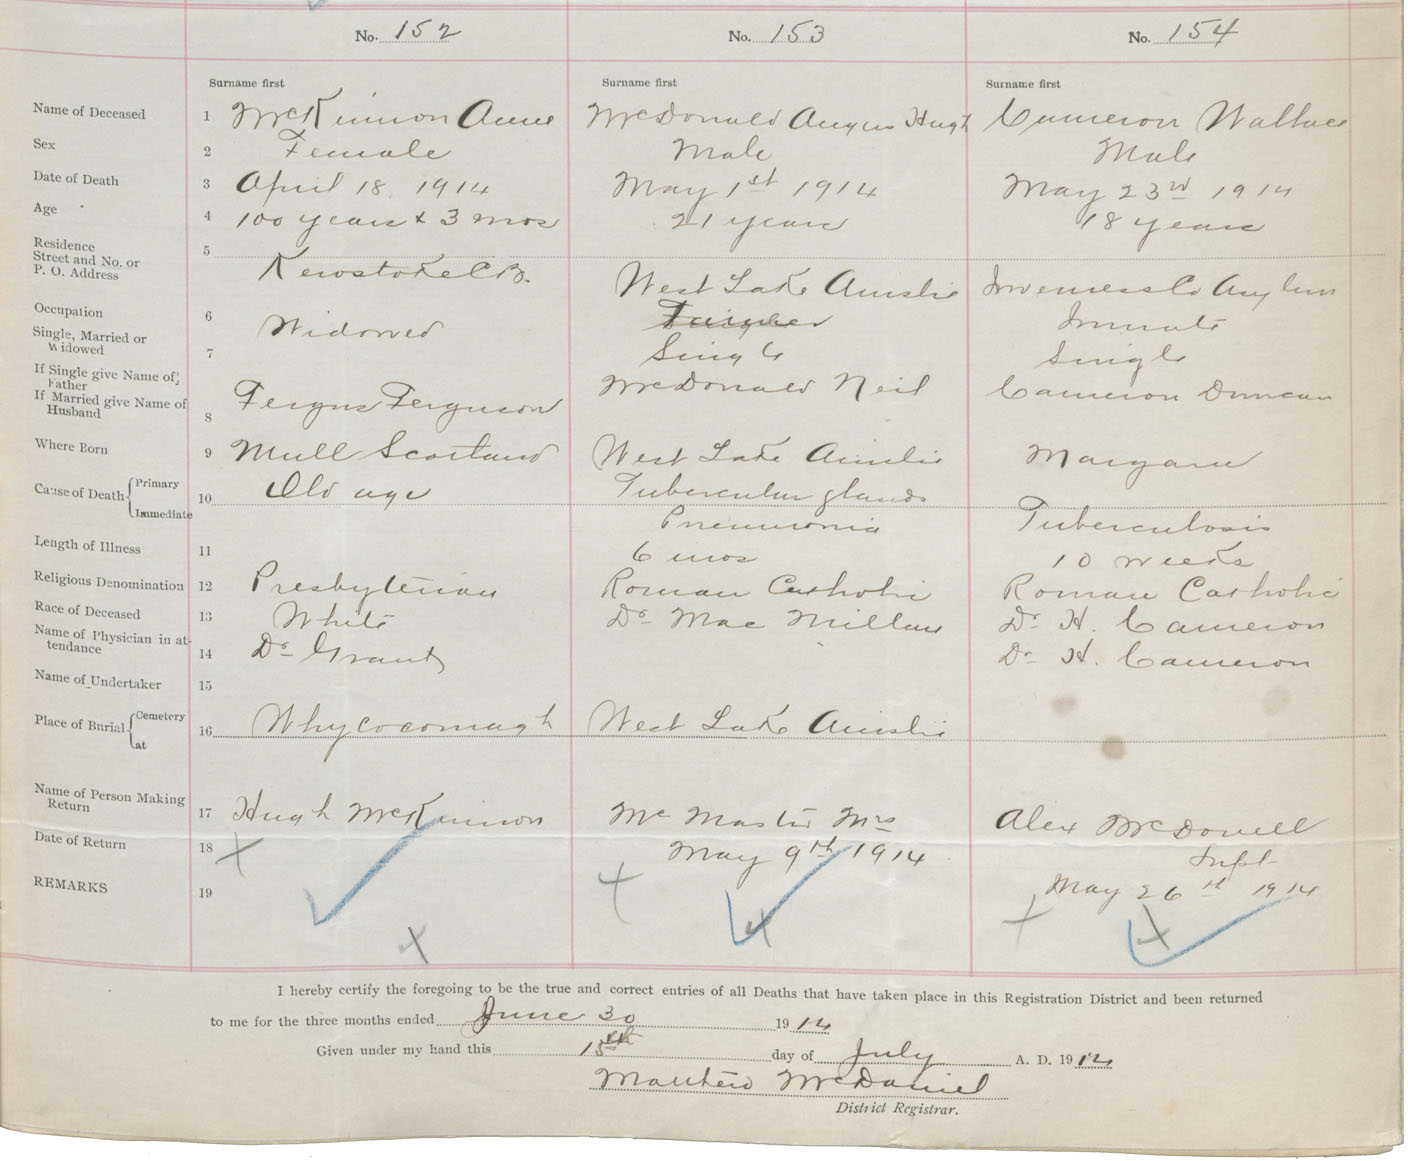 No. 152 No. 153 No. 154
Surname first Surname first Surname first
Name of Deceased 1 McKinnon Annie McDonald Angus Hugh Cameron Wallace
Sex 2 Female Male Male
Date of Death 3 April 18 1914 May 1st 1914 May 23rd 1914
Age 4 100 years & 3 mos 21 years 18 years
Residence Street and No. or P. O. Address 5 Kewstoke C B. West Lake Ainslie Inverness Co Asylum
Occupation 6 Widowed Inmate
Single, Married or Widowed 7 Single Single
If Single give Name of Father
If Married give Name of Husband 8 Fergus Ferguson McDonald Neil Cameron Duncan
Where Born 9 Mull Scotland West Lake Ainslie Margaree
Cause of Death Primary 10 Old age Tubercular glands
Immediate Pneumonia Tuberculosis
Length of Illness 11 6 mos 10 weeks
Religious Denomination 12 Presbyterian Roman Catholic Roman Catholic
Race of Deceased 13 White Dr Mac Millan Dr H. Cameron
Name of Physician in attendance 14 Dr Grant Dr H. Cameron
Name of Undertaker 15
Place of Burial Cemetery at 16 Whycocomagh West Lake Ainslie
Name of Person Making Return 17 Hugh McKinnon Mc Master Mrs Alex McDonell
Supt
Date of Return 18 May 9th 1914 May 26th 1914
REMARKS 19
I hereby certify the foregoing to be the true and correct entries of all Deaths that have taken place in this Registration District and been returned
to me for the three months ended June 30 1914
Given under my hand this 15th day of July A. D. 1914
Matthew McDaniel
District Registrar.